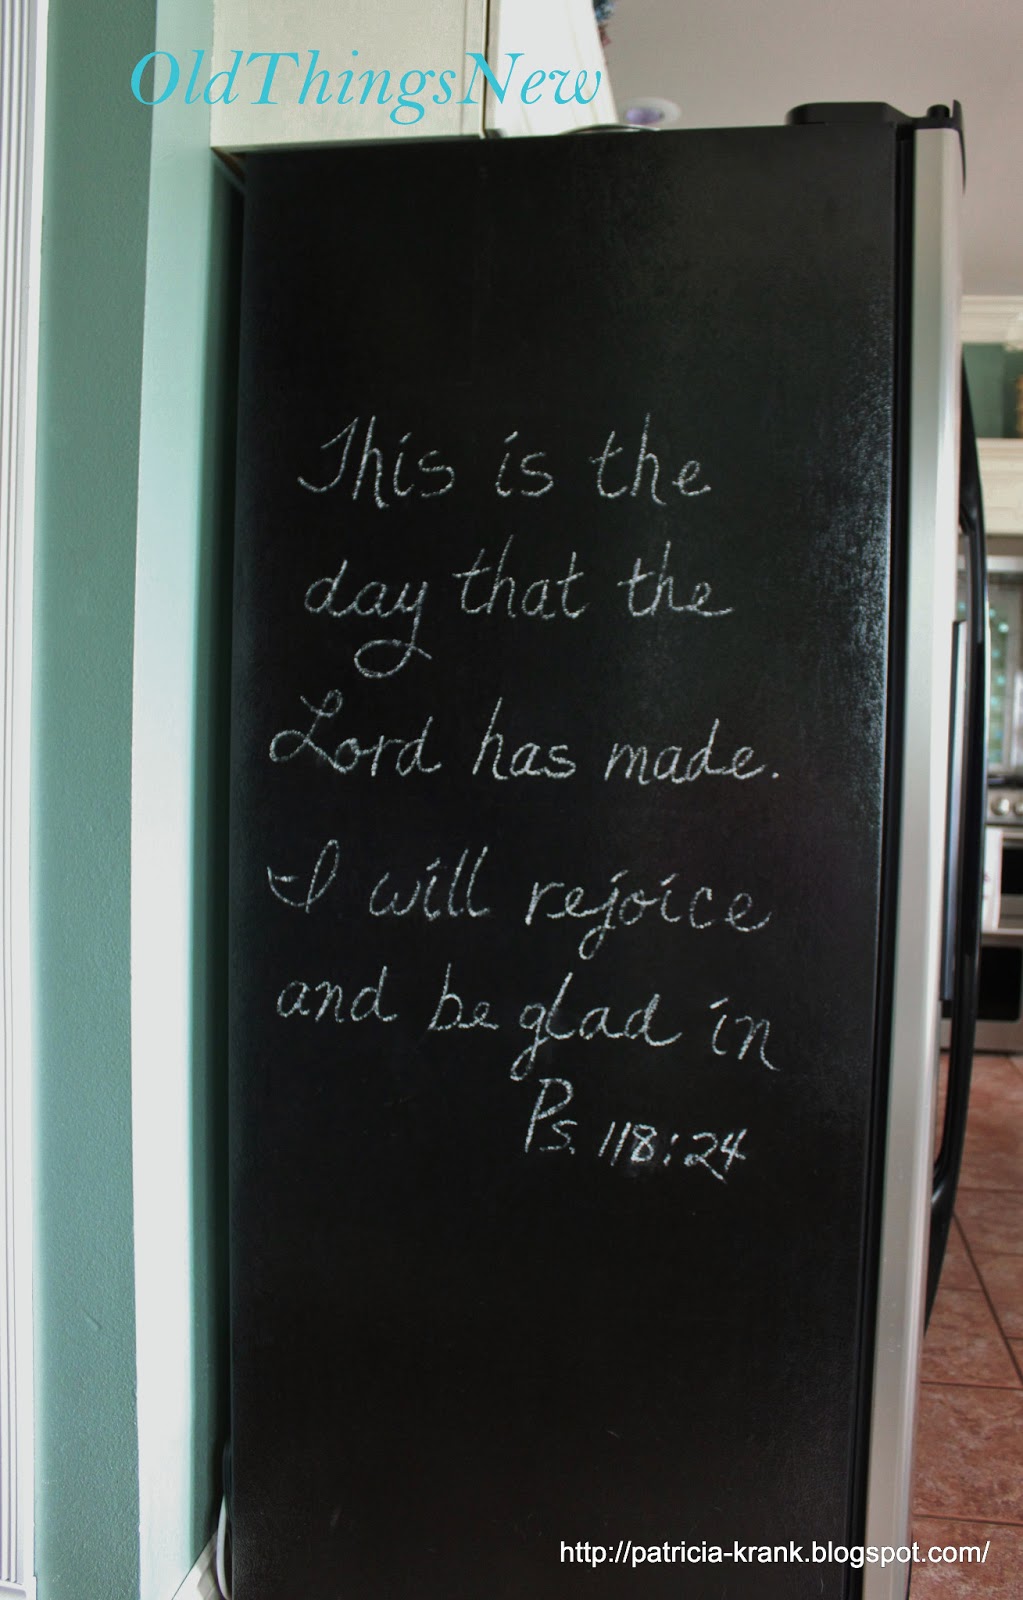 OldThingsNew
This is the
day that the
Lord has made.
I will rejoice
and be glad in
Ps. 118:24
http://patricia-krank.blogspot.com/